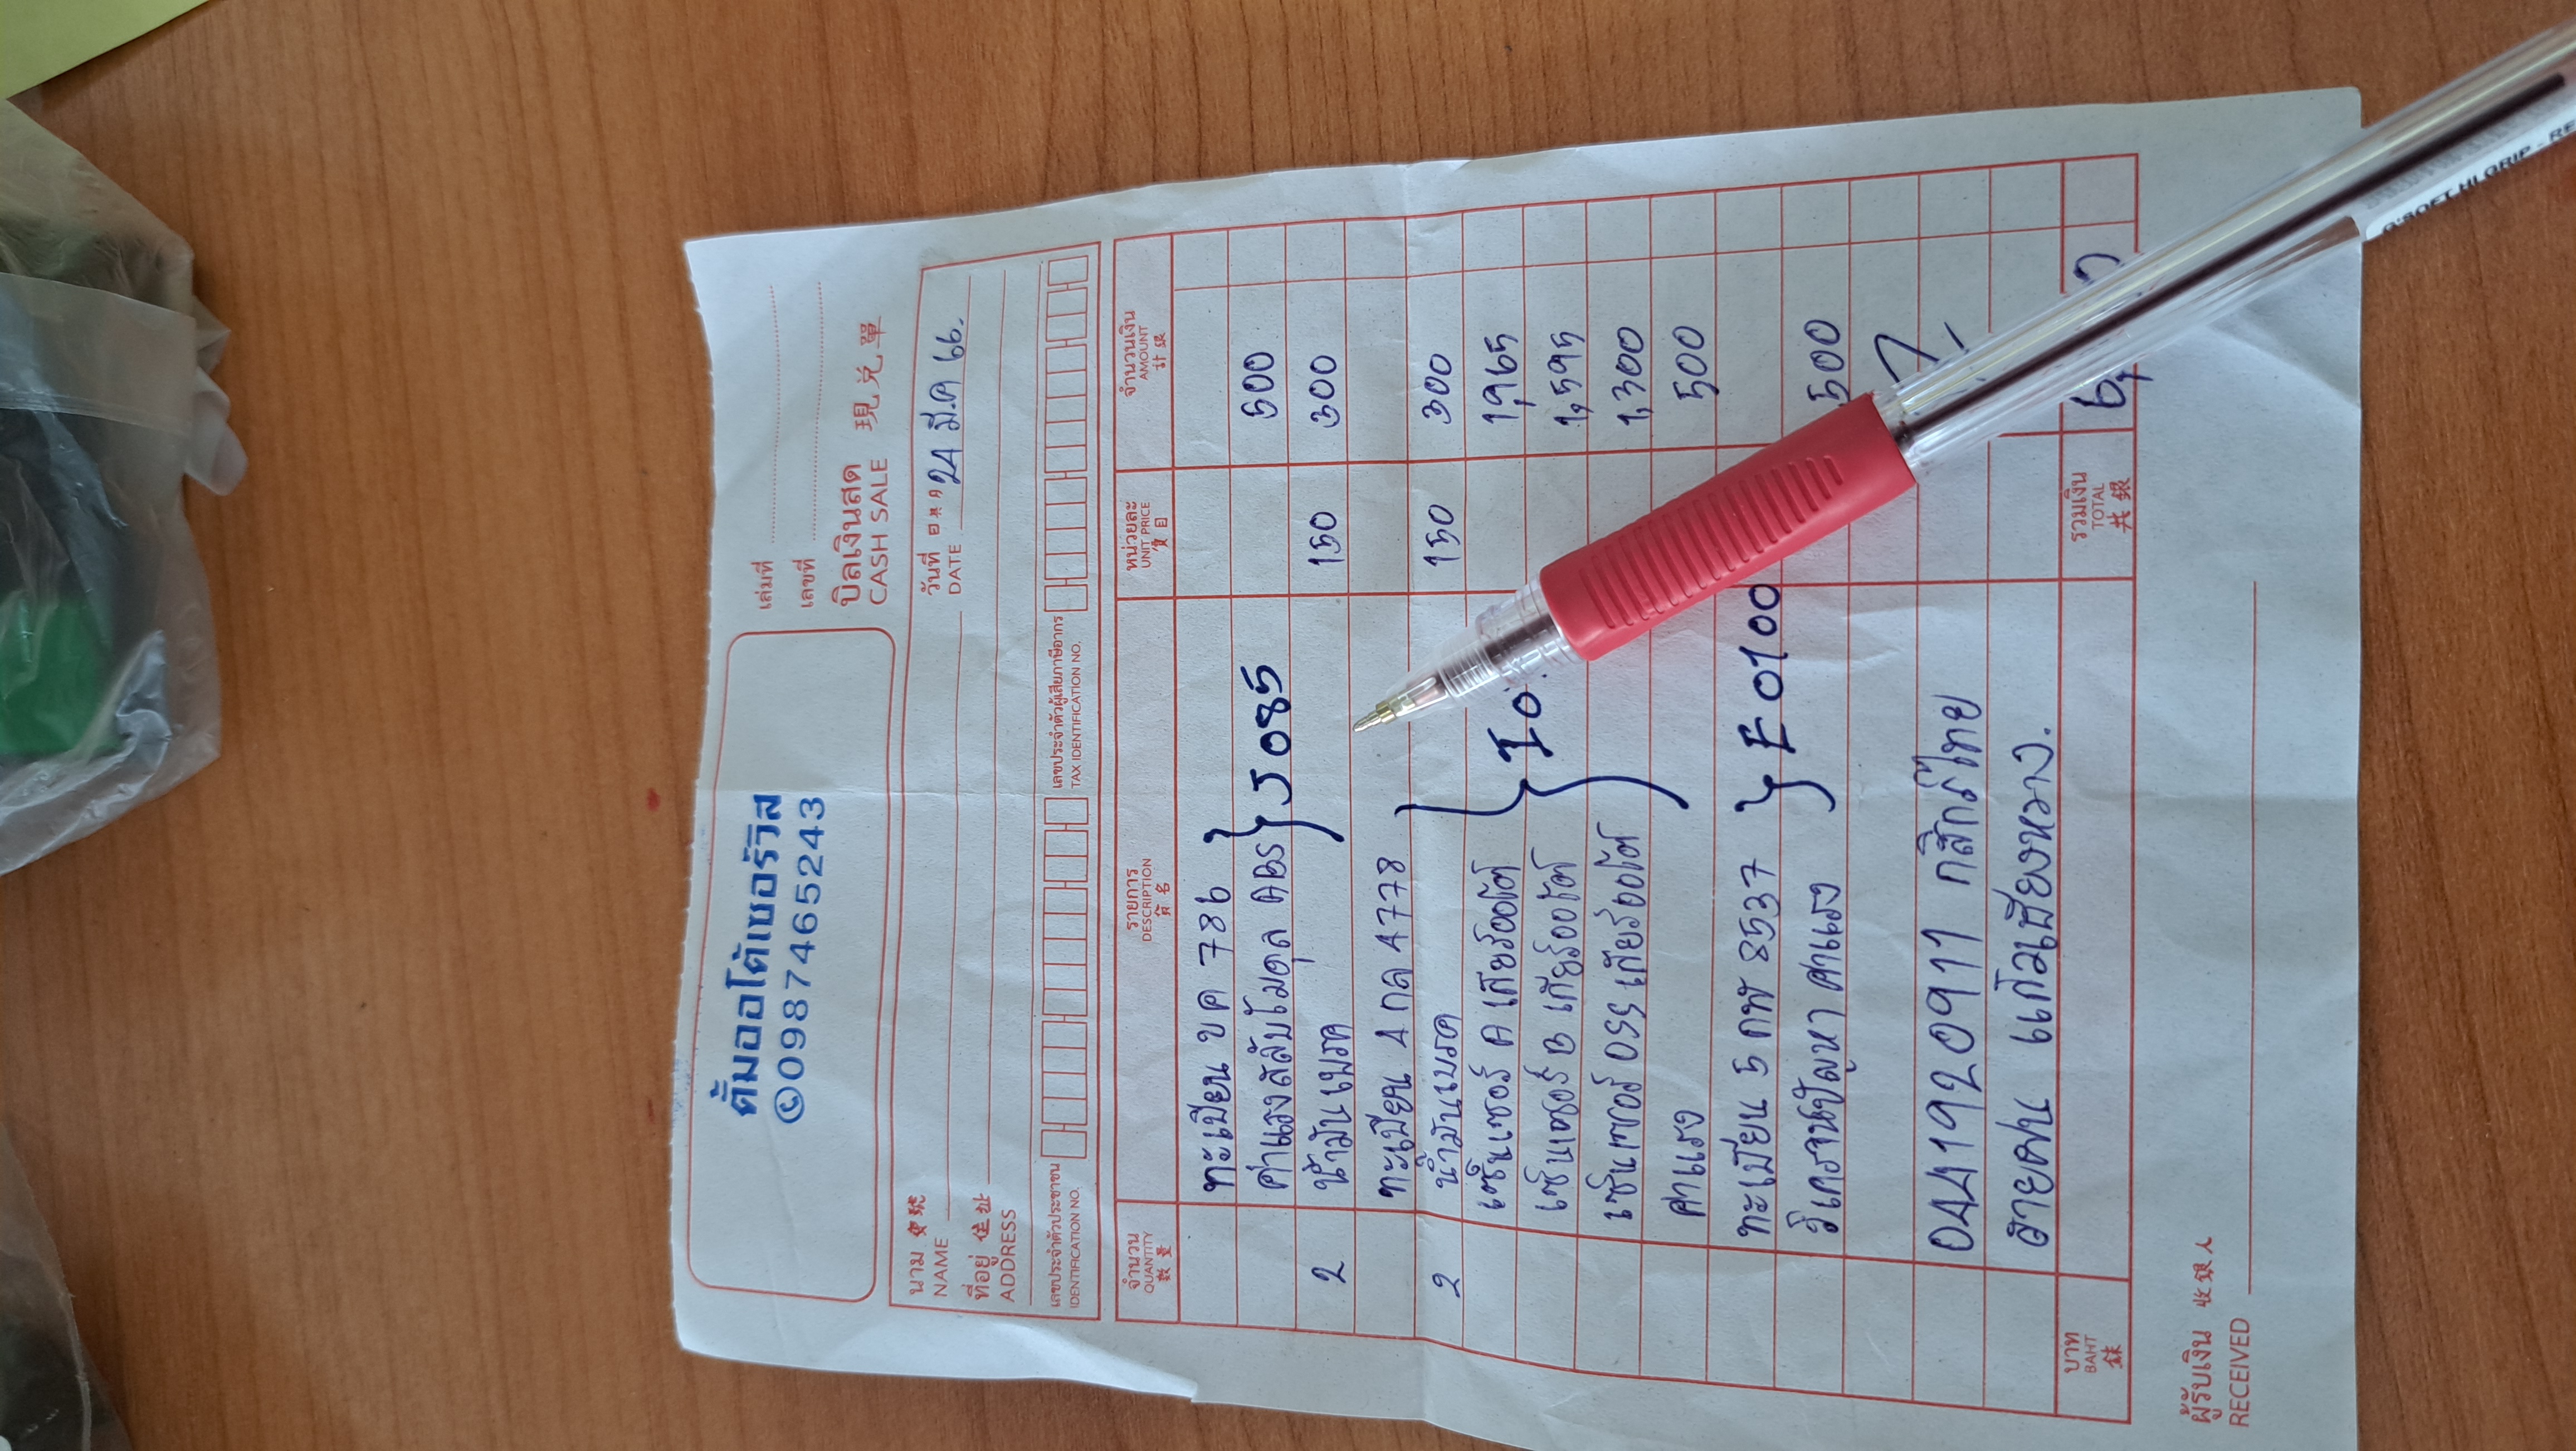 ตั้มออโต้เซอร์วิส
✆0987465243
เล่มที่
เลขที่
บิลเงินสด 現兑單
CASH SALE
นาม 寶號
NAME
วันที่ 日期
DATE 24 มี.ค 66.
ที่อยู่ 住址
ADDRESS
เลขประจำตัวประชาชน
IDENTIFICATION NO.
เลขประจำตัวผู้เสียภาษีอากร
TAX IDENTIFICATION NO.
จำนวน รายการ หน่วยละ จำนวนเงิน
QUANTITY DESCRIPTION UNIT PRICE AMOUNT
數量 貨名 價目 計銀
ทะเบียน ขค 786
ค่าแรงสลับโมดุล ABS } J085 500
2 น้ำมันเบรค 150 300
ทะเบียน 4 กล 4778
2 น้ำมันเบรค 150 300
เซ็นเซอร์ A เกียร์ออโต้ 1,965
เซ็นเซอร์ B เกียร์ออโต้ 1,595
เซ็นเซอร์ OSS เกียร์ออโต้ 1,300
ค่าแรง 500
ทะเบียน 5 8537
วิเคราะห์ปัญหา ค่าแรง } E0100 500
0441920911 กสิกรไทย
สายฝน
บาท รวมเงิน
BAHT TOTAL
銖 共銀
ผู้รับเงิน 收銀人
RECEIVED
Q'SOFT HI GRIP - RE